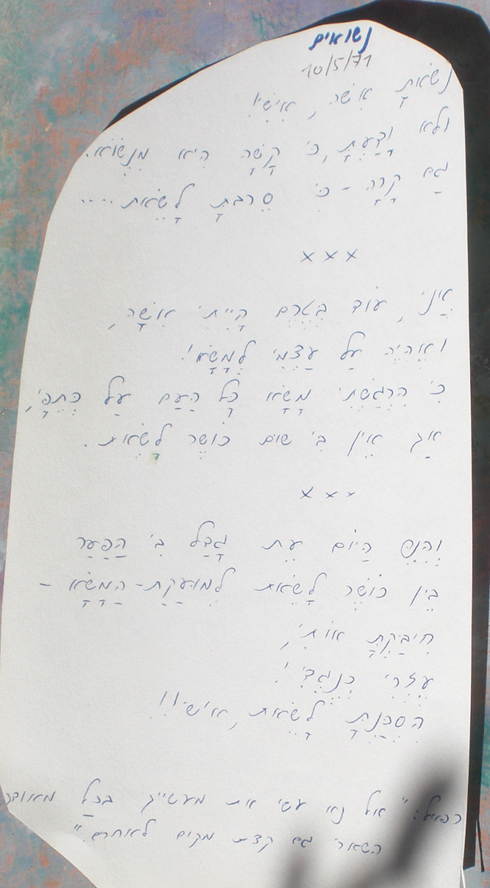 נשואים
10/5/71
נָשָׂאתָ אִשָּׁה, אִישִׁי!
ולא יָדַעְתָּ, כי קָשָׁה הִיא מִנְּשׂוֹא.
גַּם קָרָה - כי סֵרַבְתָּ לָשֵׂאת....
xxx
אֲנִי, עוֹד בְּטֶרֶם הָיִיתִי אִשָּׁה,
וָאֶהְיֶה עַל עַצְמִי לְמַשָּׂא!
כִּי הִרְגַּשְׁתִּי מַשָּׂא כָּל הָעָם עַל כְּתֵפִי,
אַךְ אֵין בִּי שום כּוֹשֶׁר לָשֵׂאת.
xxx
וְהִנֵּה הַיּוֹם עֵת גָּדַל בִּי הַפַּעַר
בֵּין כּוֹשֶׁר לָשֵׂאת לְמוּעֶקֶת-הַמַּשָּׂא -
חִיבַּקְתָּ אוֹתִי,
עֶזְרִי כְּנֶגְדִּי!
הִסְכַּנְתָּ לָשֵׂאת, אִישִׁי!!
"אל נא עשי את מעשייך בכל מאודך
השאירי גם קצת מקום לאחרים."